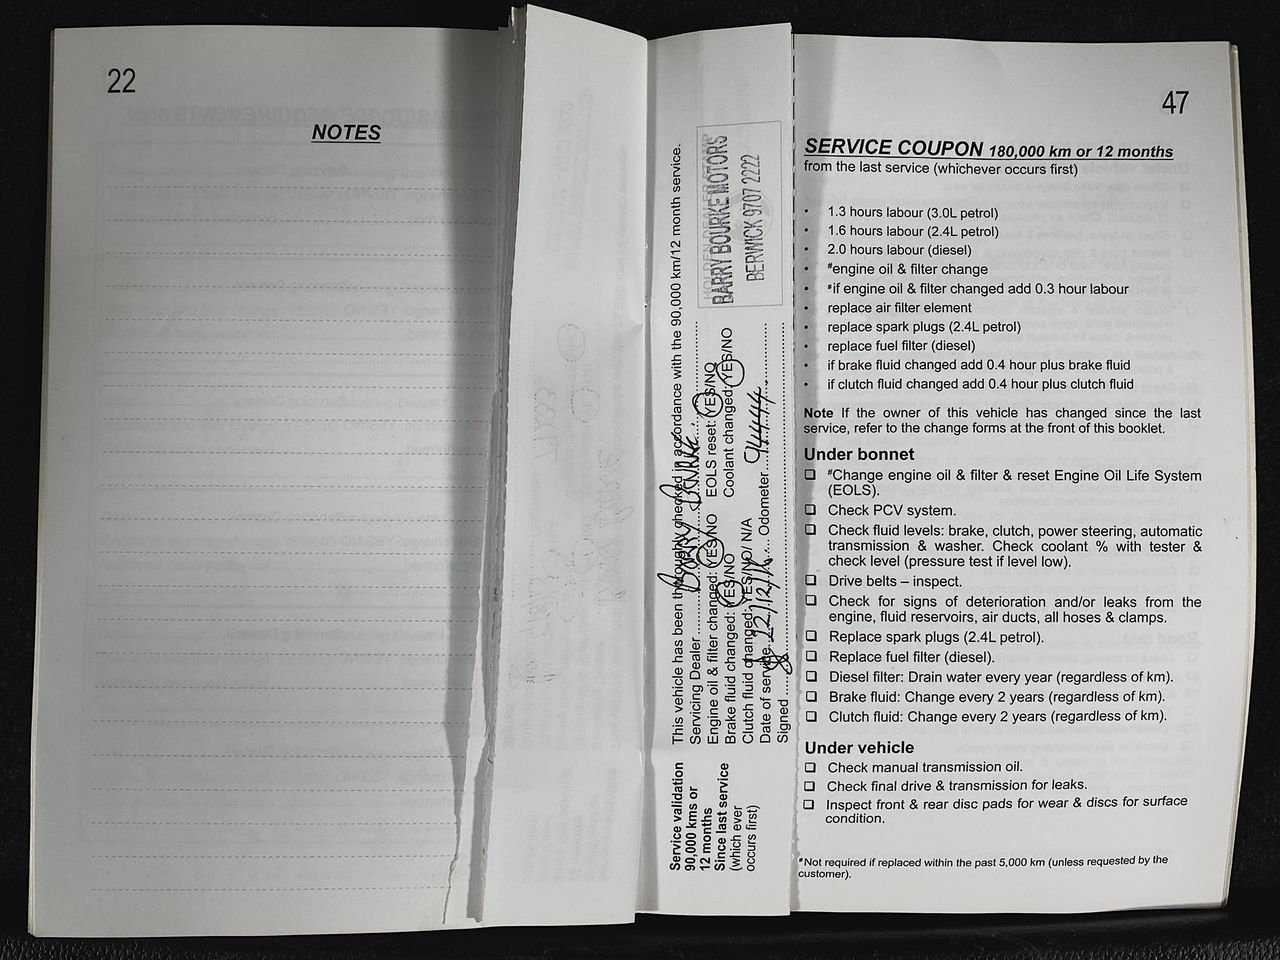 22
NOTES
Service validation
90,000 kms or
12 months
Since last service
(which ever
occurs first)
This vehicle has been thoroughly checked in accordance with the 90,000 km/12 month service.
Servicing Dealer Barry Bourke
Engine oil & filter changed: YES/NO EOLS reset: YES/NO
Brake fluid changed: YES/NO Coolant changed: YES/NO
Clutch fluid changed: YES/NO/ N/A
Date of service 12/12/14 Odometer 94444
Signed
BARRY BOURKE MOTORS
BERWICK 9707 2222
47
SERVICE COUPON 180,000 km or 12 months
from the last service (whichever occurs first)
• 1.3 hours labour (3.0L petrol)
• 1.6 hours labour (2.4L petrol)
• 2.0 hours labour (diesel)
• #engine oil & filter change
• #if engine oil & filter changed add 0.3 hour labour
• replace air filter element
• replace spark plugs (2.4L petrol)
• replace fuel filter (diesel)
• if brake fluid changed add 0.4 hour plus brake fluid
• if clutch fluid changed add 0.4 hour plus clutch fluid
Note If the owner of this vehicle has changed since the last
service, refer to the change forms at the front of this booklet.
Under bonnet
❑ #Change engine oil & filter & reset Engine Oil Life System
(EOLS).
❑ Check PCV system.
❑ Check fluid levels: brake, clutch, power steering, automatic
transmission & washer. Check coolant % with tester &
check level (pressure test if level low).
❑ Drive belts – inspect.
❑ Check for signs of deterioration and/or leaks from the
engine, fluid reservoirs, air ducts, all hoses & clamps.
❑ Replace spark plugs (2.4L petrol).
❑ Replace fuel filter (diesel).
❑ Diesel filter: Drain water every year (regardless of km).
❑ Brake fluid: Change every 2 years (regardless of km).
❑ Clutch fluid: Change every 2 years (regardless of km).
Under vehicle
❑ Check manual transmission oil.
❑ Check final drive & transmission for leaks.
❑ Inspect front & rear disc pads for wear & discs for surface
condition.
#Not required if replaced within the past 5,000 km (unless requested by the
customer).